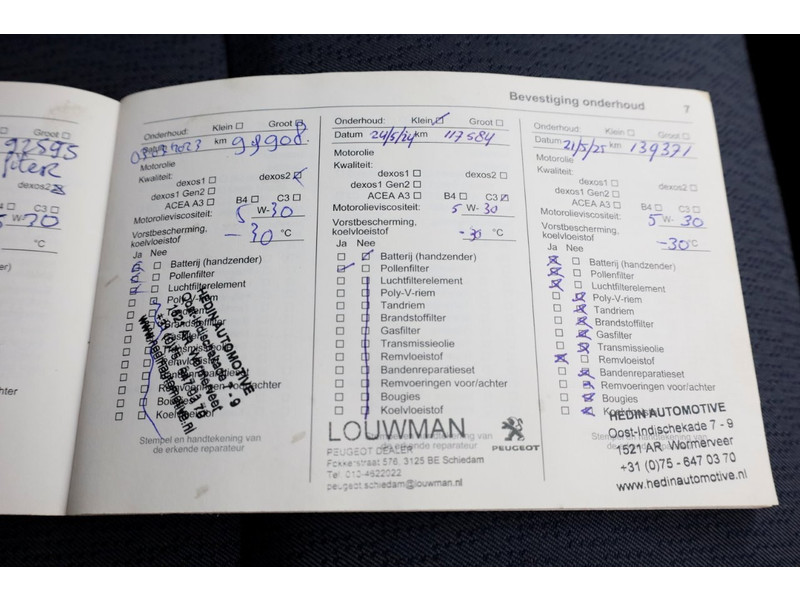 Groot
92595
filter
dexos2
C3
5 W-30
°C
Bevestiging onderhoud 7
Onderhoud: Klein Groot
km 98908
Motorolie
Kwaliteit: dexos1 dexos2
dexos1 Gen2
ACEA A3 B4 C3
Motorolieviscositeit: 5 W-30
Vorstbescherming,
koelvloeistof -30 °C
Ja Nee
Batterij (handzender)
Pollenfilter
Luchtfilterelement
Poly-V-riem
Tandriem
Brandstoffilter
Gasfilter
Transmissieolie
Remvloeistof
Bandenreparatieset
Remvoeringen voor/achter
Bougies
Koelvloeistof
HEDIN AUTOMOTIVE
Oost-Indischekade 7 - 9
1521 AR Wormerveer
+31 (0)75 - 647 03 70
www.hedinautomotive.nl
Stempel en handtekening van
de erkende reparateur
Onderhoud: Klein Groot
Datum 24/5/24 km 117584
Motorolie
Kwaliteit: dexos1 dexos2
dexos1 Gen2
ACEA A3 B4 C3
Motorolieviscositeit: 5 W-30
Vorstbescherming,
koelvloeistof -30 °C
Ja Nee
Batterij (handzender)
Pollenfilter
Luchtfilterelement
Poly-V-riem
Tandriem
Brandstoffilter
Gasfilter
Transmissieolie
Remvloeistof
Bandenreparatieset
Remvoeringen voor/achter
Bougies
Koelvloeistof
Stempel en handtekening van
de erkende reparateur
LOUWMAN
PEUGEOT
PEUGEOT DEALER
Fokkerstraat 576, 3125 BE Schiedam
Tel. 010-4622022
peugeot.schiedam@louwman.nl
Onderhoud: Klein Groot
Datum 21/5/25 km 139371
Motorolie
Kwaliteit: dexos1 dexos2
dexos1 Gen2
ACEA A3 B4 C3
Motorolieviscositeit: 5 W-30
Vorstbescherming,
koelvloeistof -30°C
Ja Nee
Batterij (handzender)
Pollenfilter
Luchtfilterelement
Poly-V-riem
Tandriem
Brandstoffilter
Gasfilter
Transmissieolie
Remvloeistof
Bandenreparatieset
Remvoeringen voor/achter
Bougies
Koelvloeistof
Stempel en handtekening van
HEDIN AUTOMOTIVE
Oost-Indischekade 7 - 9
1521 AR Wormerveer
+31 (0)75 - 647 03 70
www.hedinautomotive.nl